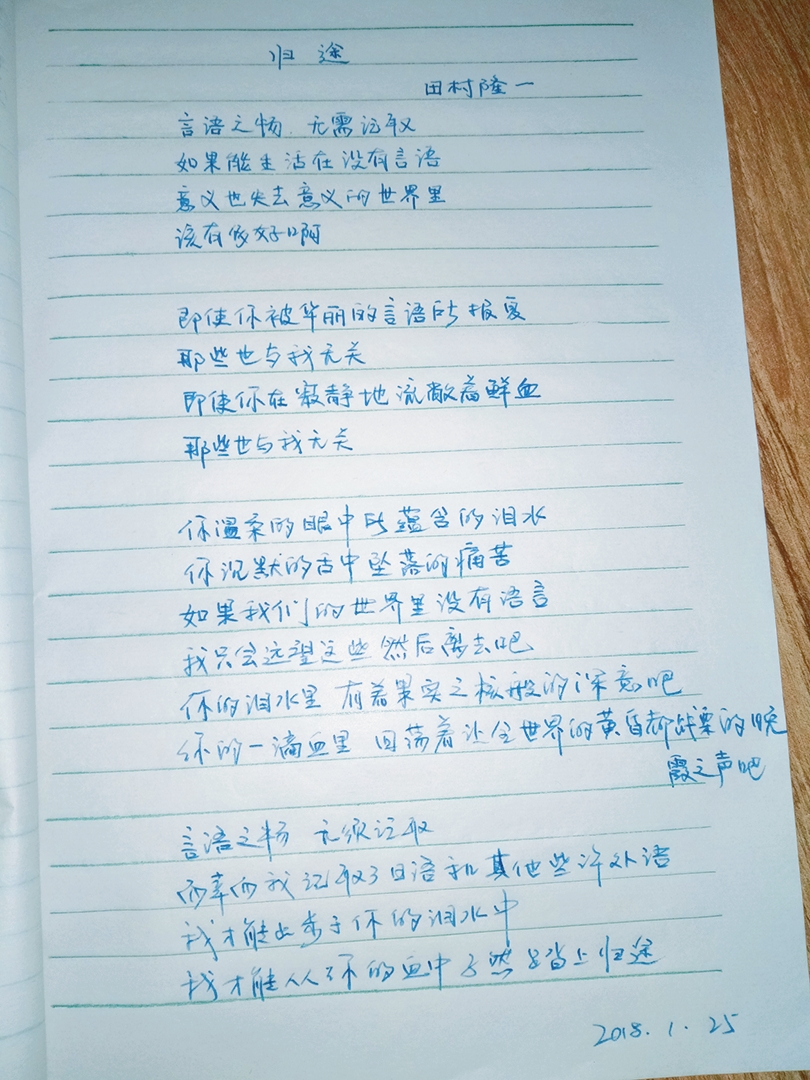 归途
田村隆一
言语之物 无需记取
如果能生活在没有言语
意义也失去意义的世界里
该有多好啊
即使你被华丽的言语所报复
那些也与我无关
即使你在寂静地流散着鲜血
那些也与我无关
你温柔的眼中所蕴含的泪水
你沉默的舌中坠落的痛苦
如果我们的世界里没有语言
我只会远望这些 然后离去吧
你的泪水里 有着果实之核般的深意吧
你的一滴血里 回荡着让全世界的黄昏都战栗的晚
霞之声吧
言语之物 无须记取
而幸而我记取了日语和其他些许外语
我才能止步于你的泪水中
我才能从你的血中孑然踏上归途
2018.1.25